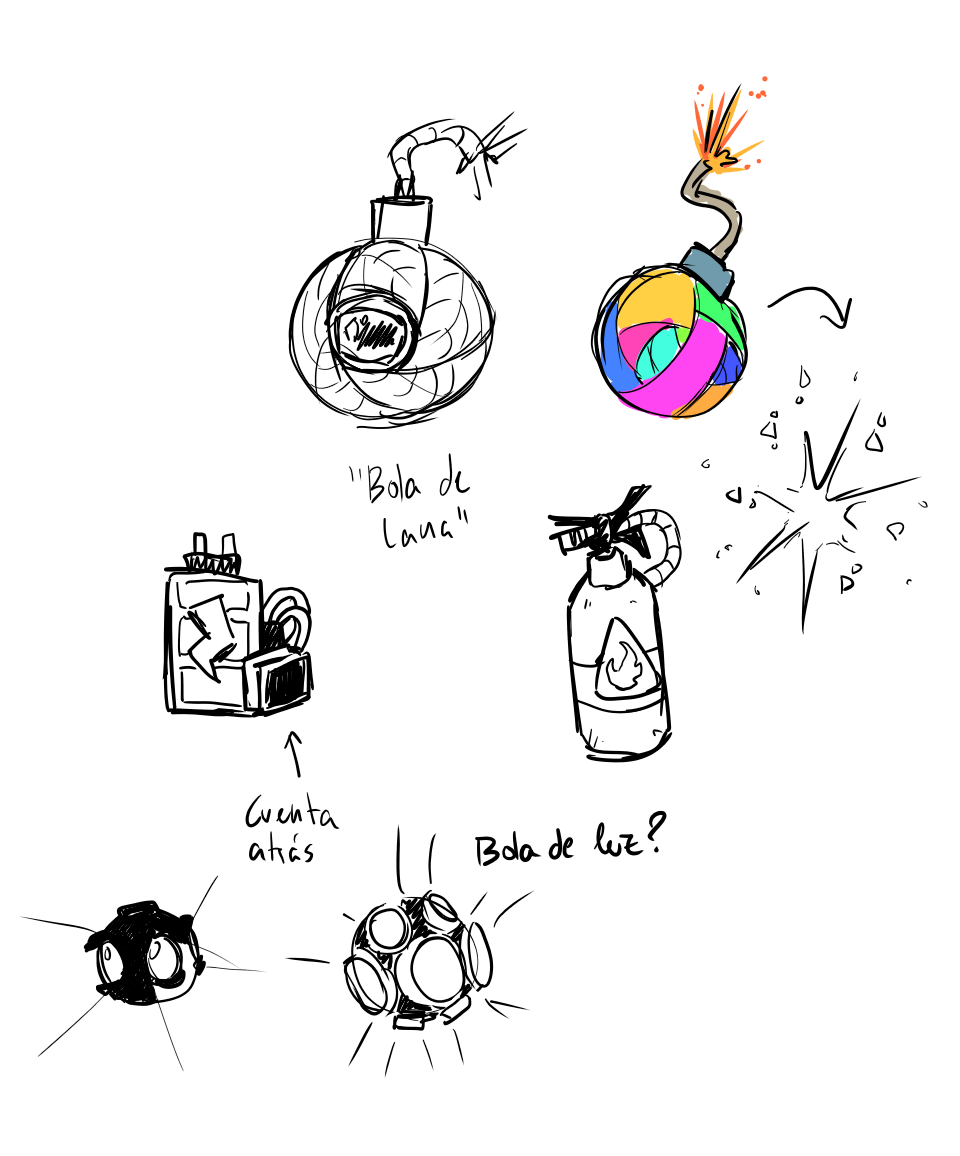 "Bola de
Lana"
Cuenta
atrás
Bola de luz?